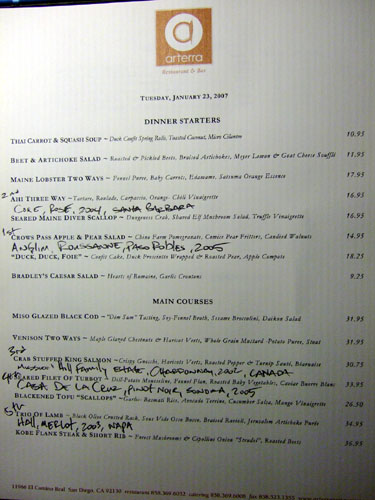 a
arterra
Restaurant & Bar
TUESDAY, JANUARY 23, 2007
DINNER STARTERS
THAI CARROT & SQUASH SOUP ~ Duck Confit Spring Rolls, Toasted Coconut, Micro Cilantro 10.95
BEET & ARTICHOKE SALAD ~ Roasted & Pickled Beets, Braised Artichokes, Meyer Lemon & Goat Cheese Soufflé 11.95
MAINE LOBSTER TWO WAYS ~ Fennel Puree, Baby Carrots, Edamame, Satsuma Orange Essence 17.95
2nd
AHI THREE WAY ~ Tartare, Roulade, Carpaccio, Orange- Chili Vinaigrette 16.95
CORE, ROSÉ, 2004, SANTA BARBARA
SEARED MAINE DIVER SCALLOP ~ Dungeness Crab, Shaved Elf Mushroom Salad, Truffle Vinaigrette 16.95
1st
CROWS PASS APPLE & PEAR SALAD ~ China Farm Pomegranate, Comice Pear Fritters, Candied Walnuts 14.95
ANGLIM, ROUSSANNE, PASO ROBLES, 2005
"DUCK, DUCK, FOIE" ~ Confit Cake, Duck Prosciutto Wrapped & Roasted Pear, Apple Compote 18.25
BRADLEY'S CAESAR SALAD ~ Hearts of Romaine, Garlic Croutons 9.25
MAIN COURSES
MISO GLAZED BLACK COD ~ "Dim Sum" Tasting, Soy-Fennel Broth, Sesame Broccolini, Daikon Salad 31.95
VENISON TWO WAYS ~ Maple Glazed Chestnuts & Haricot Verts, Whole Grain Mustard -Potato Puree, Stout 31.75
3rd
CRAB STUFFED KING SALMON ~ Crispy Gnocchi, Haricots Verts, Roasted Pepper & Turnip Sauté, Bearnaise 30.75
Mission Hill Family ESTATE, CHARDONNAY, 2002, CANADA
4th
SEARED FILET OF TURBOT ~ Dill-Potato Mousseline, Fennel Flan, Roasted Baby Vegetables, Caviar Beurre Blanc 33.95
CASA DE LA CRUZ PINOT NOIR, SONOMA, 2005
BLACKENED TOFU "SCALLOPS" ~ Garlic- Basmati Rice, Avocado Terrine, Cucumber Salsa, Mango Vinaigrette 26.50
5th
TRIO OF LAMB ~ Black Olive Crusted Rack, Sous Vide Osso Bucco, Braised Ravioli, Jerusalem Artichoke Purée 34.95
Hall, MERLOT, 2003, NAPA
KOBE FLANK STEAK & SHORT RIB ~ Forest Mushrooms & Cipollini Onion "Strudel", Roasted Beets 36.95
11966 El Camino Real San Diego, CA 92130 restaurant 858.369.6032 catering 858.369.6008 fax 858.523.1355